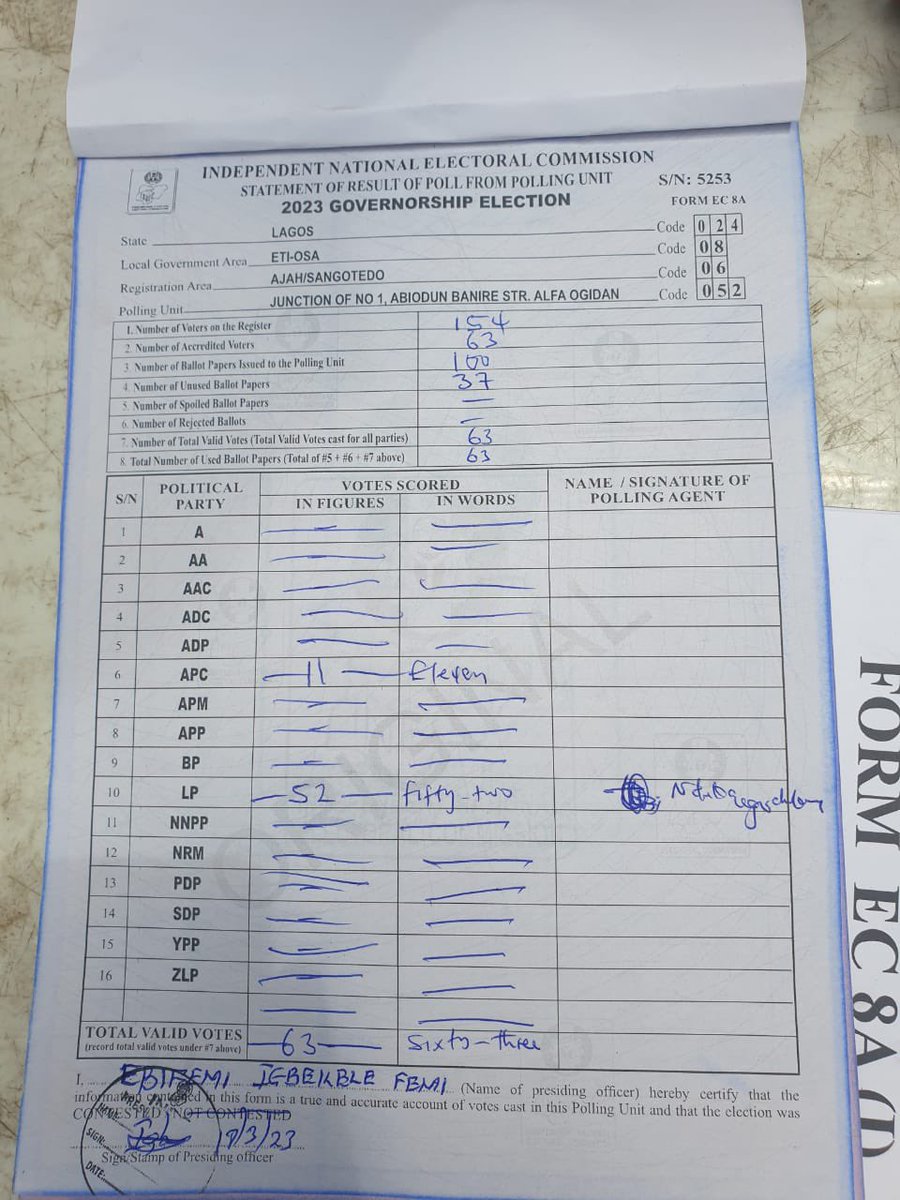 INDEPENDENT NATIONAL ELECTORAL COMMISSION
STATEMENT OF RESULT OF POLL FROM POLLING UNIT S/N: 5253
2023 GOVERNORSHIP ELECTION FORM EC 8A
State LAGOS Code 0 2 4
Local Government Area ETI-OSA Code 0 8
Registration Area AJAH/SANGOTEDO Code 0 6
Polling Unit JUNCTION OF NO 1, ABIODUN BANIRE STR. ALFA OGIDAN Code 0 5 2
1. Number of Voters on the Register 154
2. Number of Accredited Voters 63
3 Number of Ballot Papers Issued to the Polling Unit 100
4. Number of Unused Ballot Papers 37
5. Number of Spoiled Ballot Papers —
6. Number of Rejected Ballots —
7. Number of Total Valid Votes (Total Valid Votes cast for all parties) 63
8. Total Number of Used Ballot Papers (Total of #5 + #6 + #7 above) 63
S/N POLITICAL PARTY VOTES SCORED NAME / SIGNATURE OF POLLING AGENT
IN FIGURES IN WORDS
1 A — —
2 AA — —
3 AAC — —
4 ADC — —
5 ADP — —
6 APC —11— Eleven
7 APM — —
8 APP — —
9 BP — —
10 LP —52— fifty-two
11 NNPP — —
12 NRM — —
13 PDP — —
14 SDP — —
15 YPP — —
16 ZLP — —
— —
TOTAL VALID VOTES —63— Sixty-three
(record total valid votes under #7 above)
I, FEMI (Name of presiding officer) hereby certify that the
information contained in this form is a true and accurate account of votes cast in this Polling Unit and that the election was
CONTESTED / NOT CONTESTED
18/3/23
Sign/Stamp of Presiding officer
SIGN:
DATE:
ORIGINAL
FORM EC 8A (I)